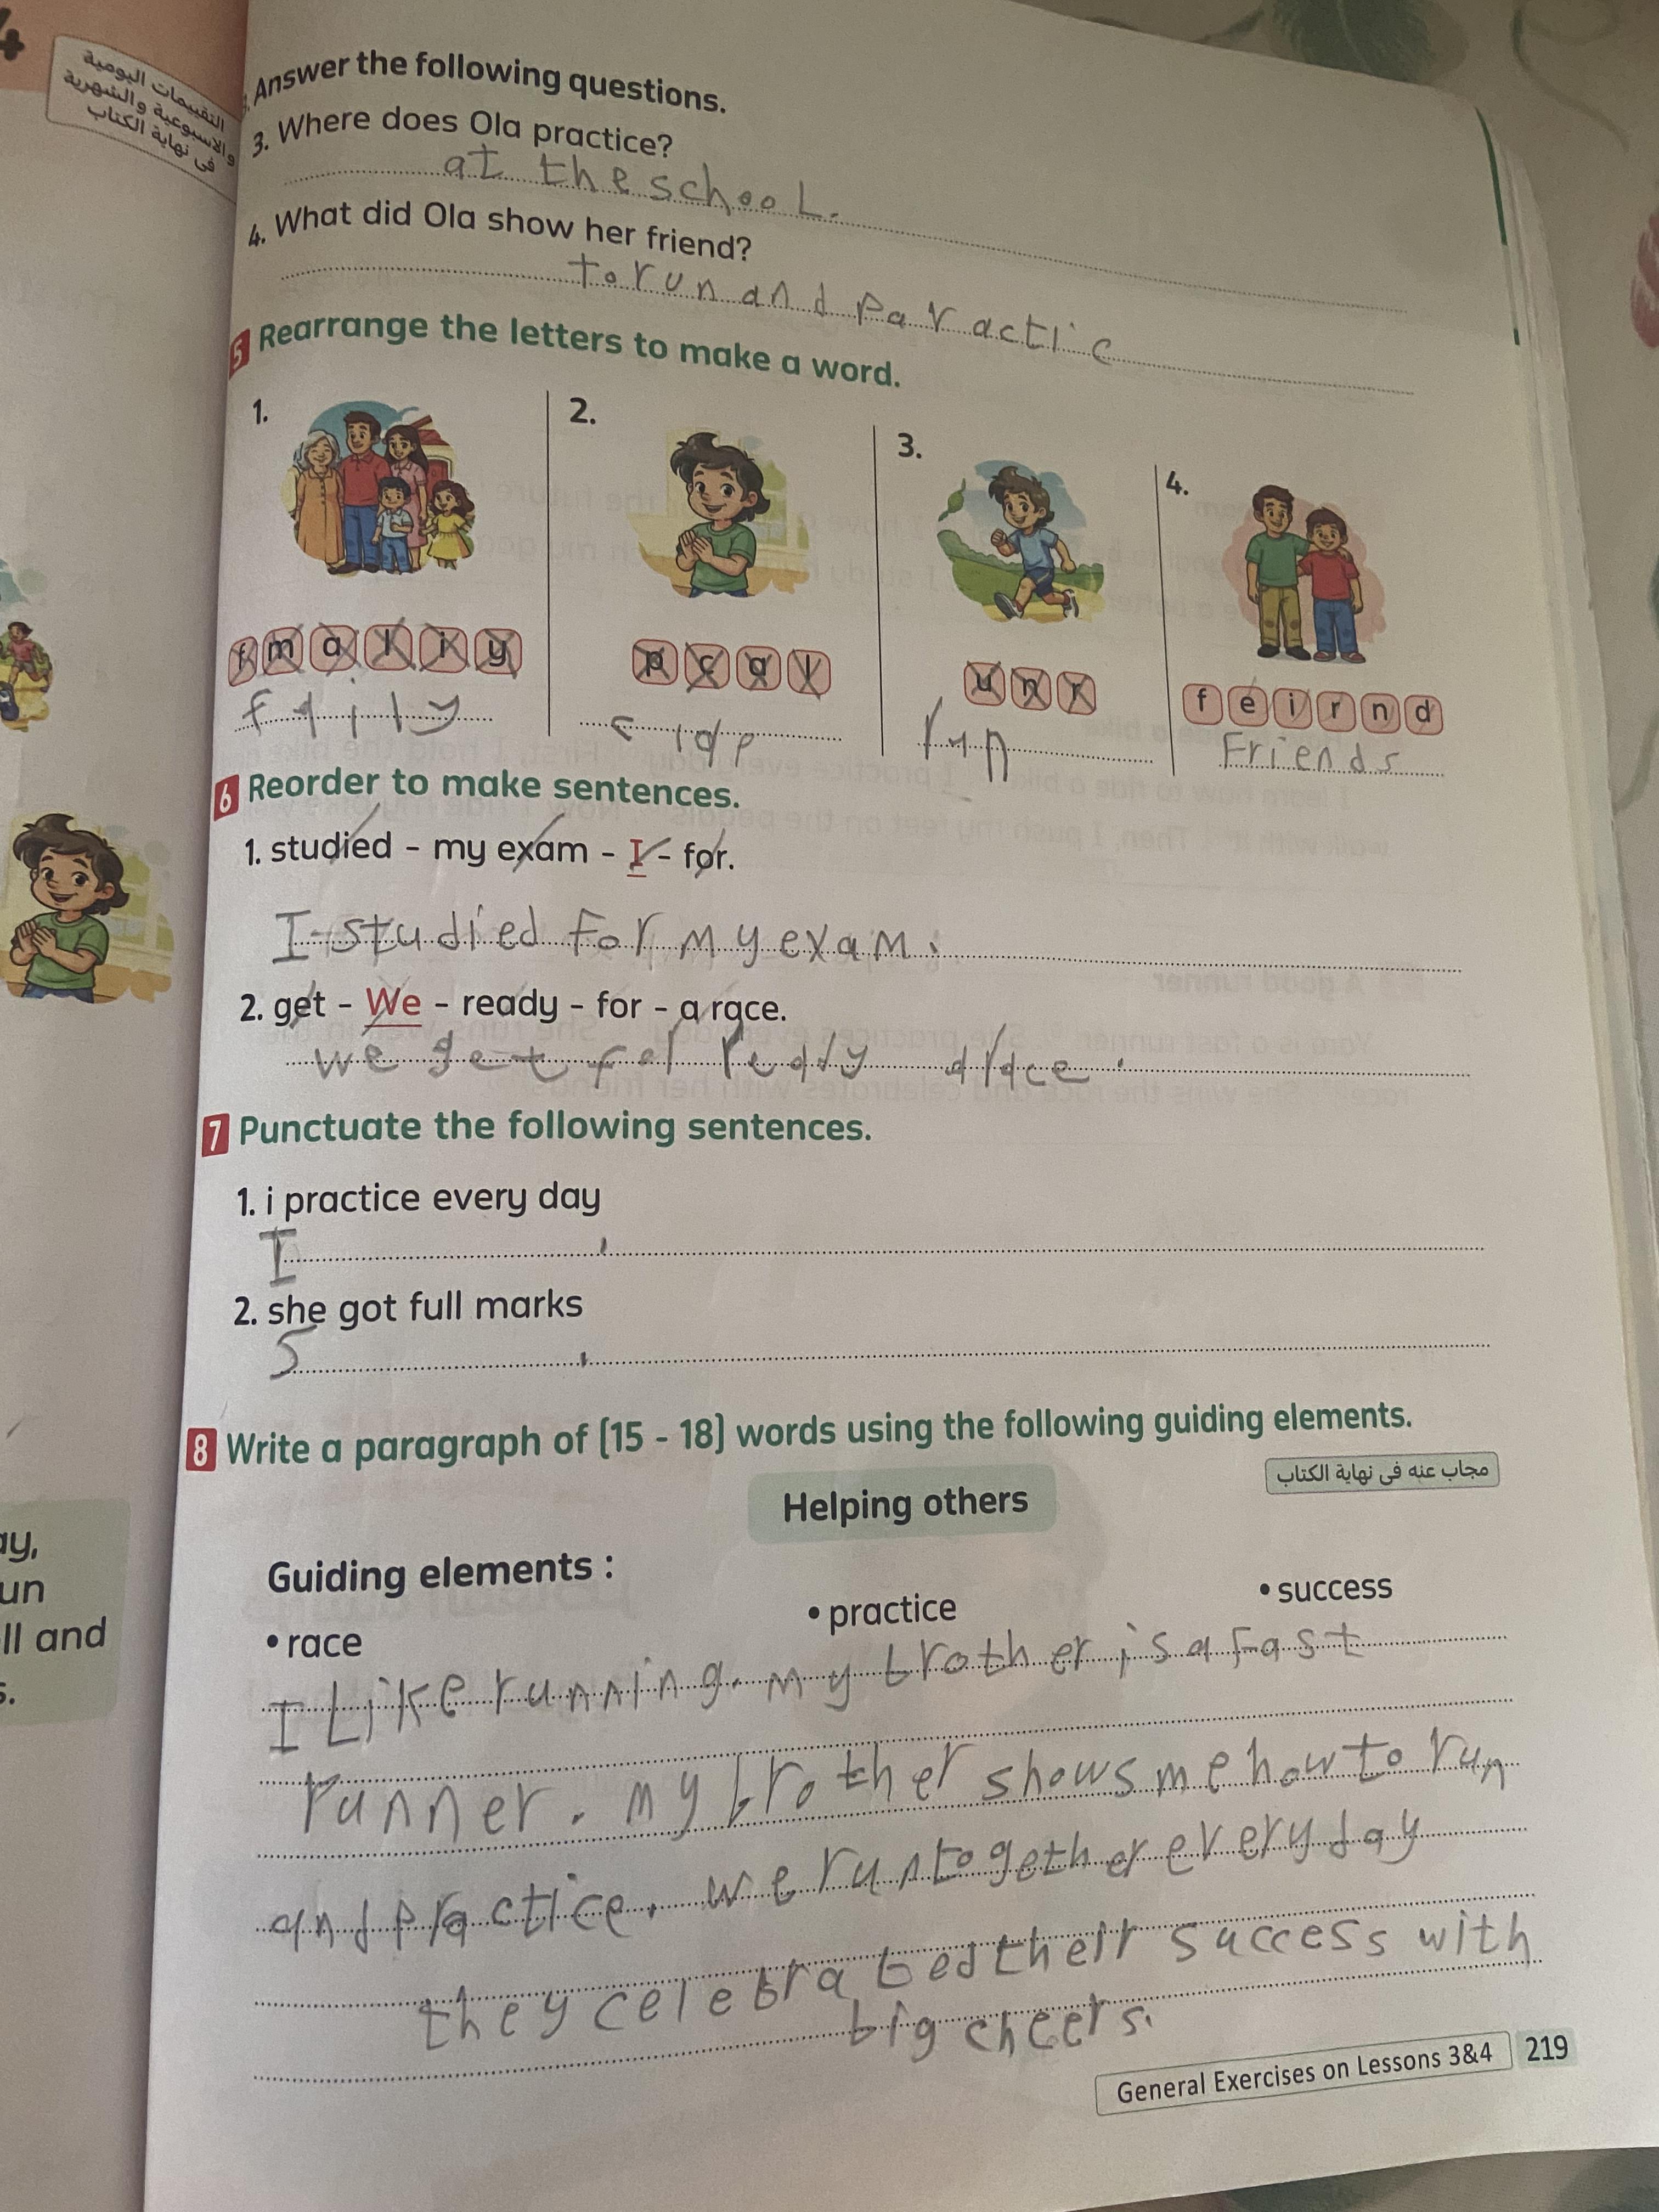 4
التقييمات اليومية
والاسبوعية والشهرية
فى نهاية الكتاب
Answer the following questions.
3. Where does Ola practice?
at the school.
4. What did Ola show her friend?
to run and paractic
5 Rearrange the letters to make a word.
1. 2. 3. 4.
f m a l i y p c a l u n r f e i r n d
faily clap run Friends
6 Reorder to make sentences.
1. studied - my exam - I - for.
I studied For my exam.
2. get - We - ready - for - a race.
we get for ready a race.
7 Punctuate the following sentences.
1. i practice every day
I .
2. she got full marks
S .
8 Write a paragraph of (15 - 18) words using the following guiding elements.
مجاب عنه فى نهاية الكتاب
Helping others
Guiding elements :
• race • practice • success
I Like running. my brother is a Fast
runner. my brother shows me how to run
and practice. we run together every day
they celebrated their success with
big cheers.
General Exercises on Lessons 3&4 219
ay,
un
ll and
s.